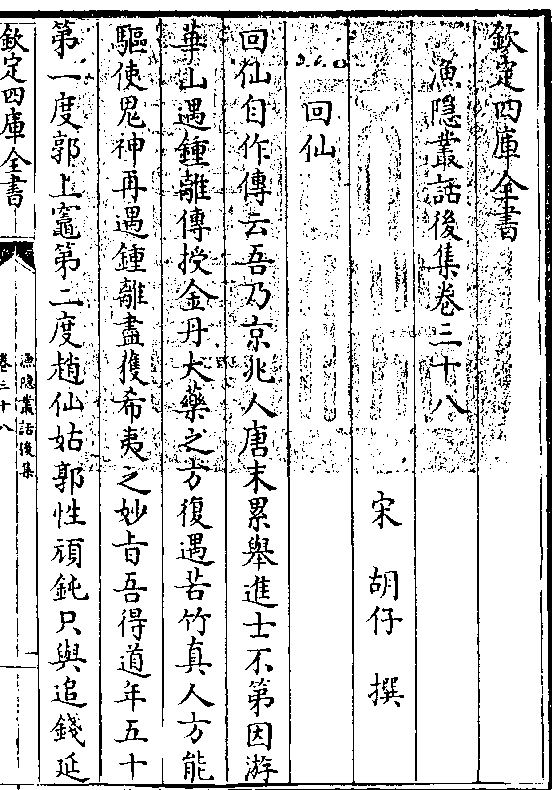 欽定四庫全書
漁隱叢話後集卷三十八
宋 胡仔 撰
回仙
回仙自作傳云吾乃京兆人唐末累舉進士不第因游
華山遇鍾離傳授金丹大藥之方復遇苦竹真人方能
驅使鬼神再遇鍾離盡獲希夷之妙旨吾得道年五十
第一度郭上竈第二度趙仙姑郭性頑鈍只與追錢延
欽定四庫全書
漁隱叢話後集
卷三十八